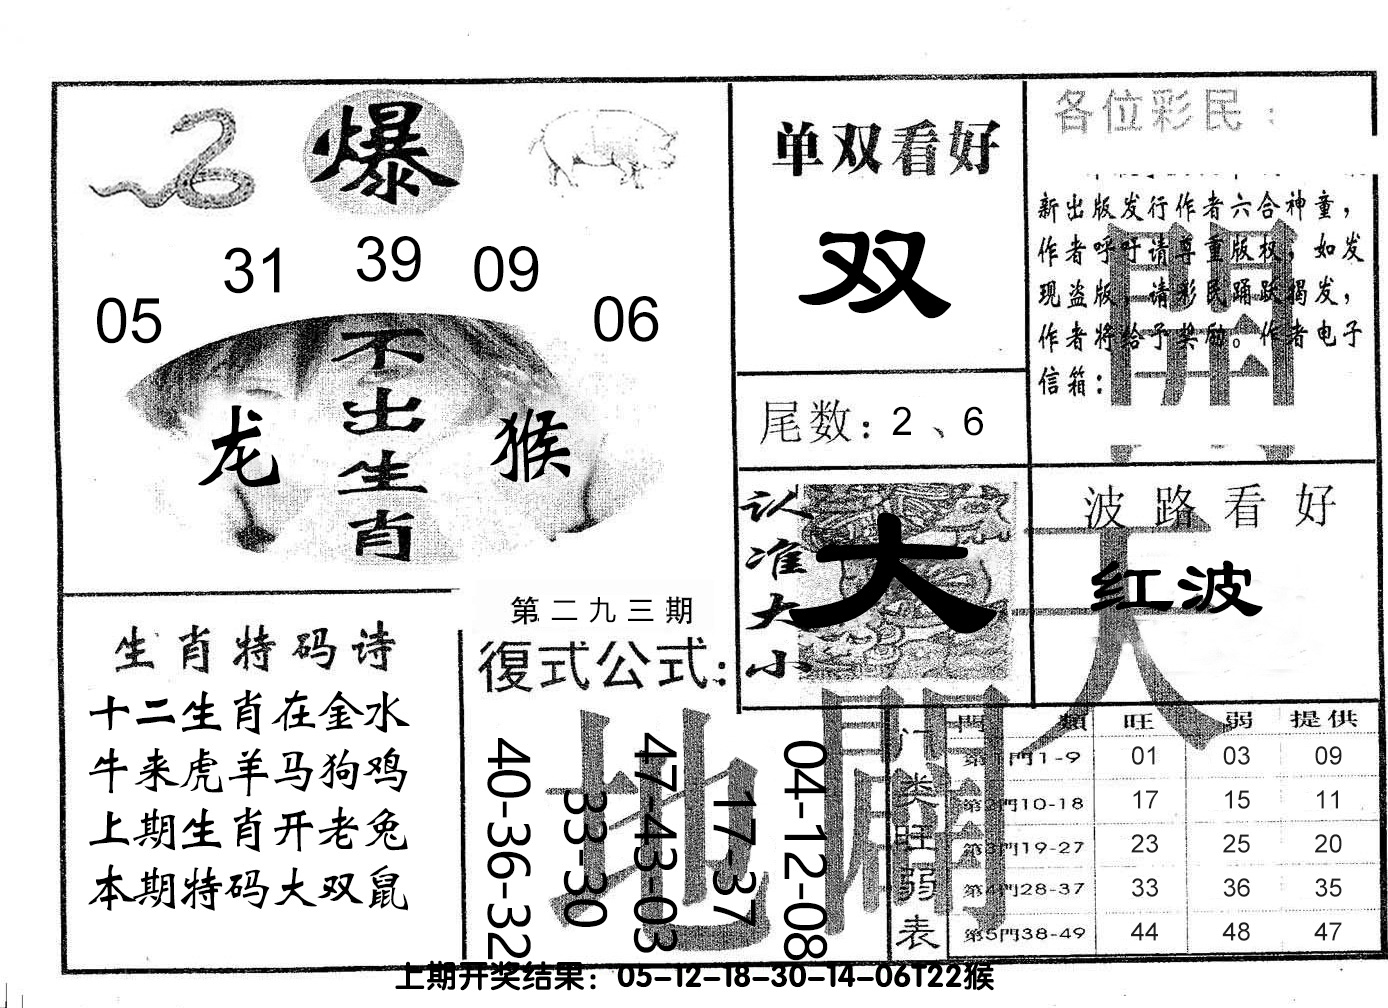 爆
05 31 39 09 06
不出生肖
龙 猴
单双看好
双
尾数：2、6
各位彩民：
新出版发行作者六合神童，
作者呼吁请尊重版权，如发
现盗版，请彩民踊跃揭发，
作者将给予奖励。作者电子
信箱：
認准大小
大
波路看好
红波
生肖特码诗
十二生肖在金水
牛来虎羊马狗鸡
上期生肖开老兔
本期特码大双鼠
第二九三期
復式公式：
40-36-32
33-30
47-43-03
17-37
04-12-08
天
開
地
闢
门类旺弱表
門 類 旺 弱 提供
第1門1-9 01 03 09
第2門10-18 17 15 11
第3門19-27 23 25 20
第4門28-37 33 36 35
第5門38-49 44 48 47
上期开奖结果：05-12-18-30-14-06T22猴